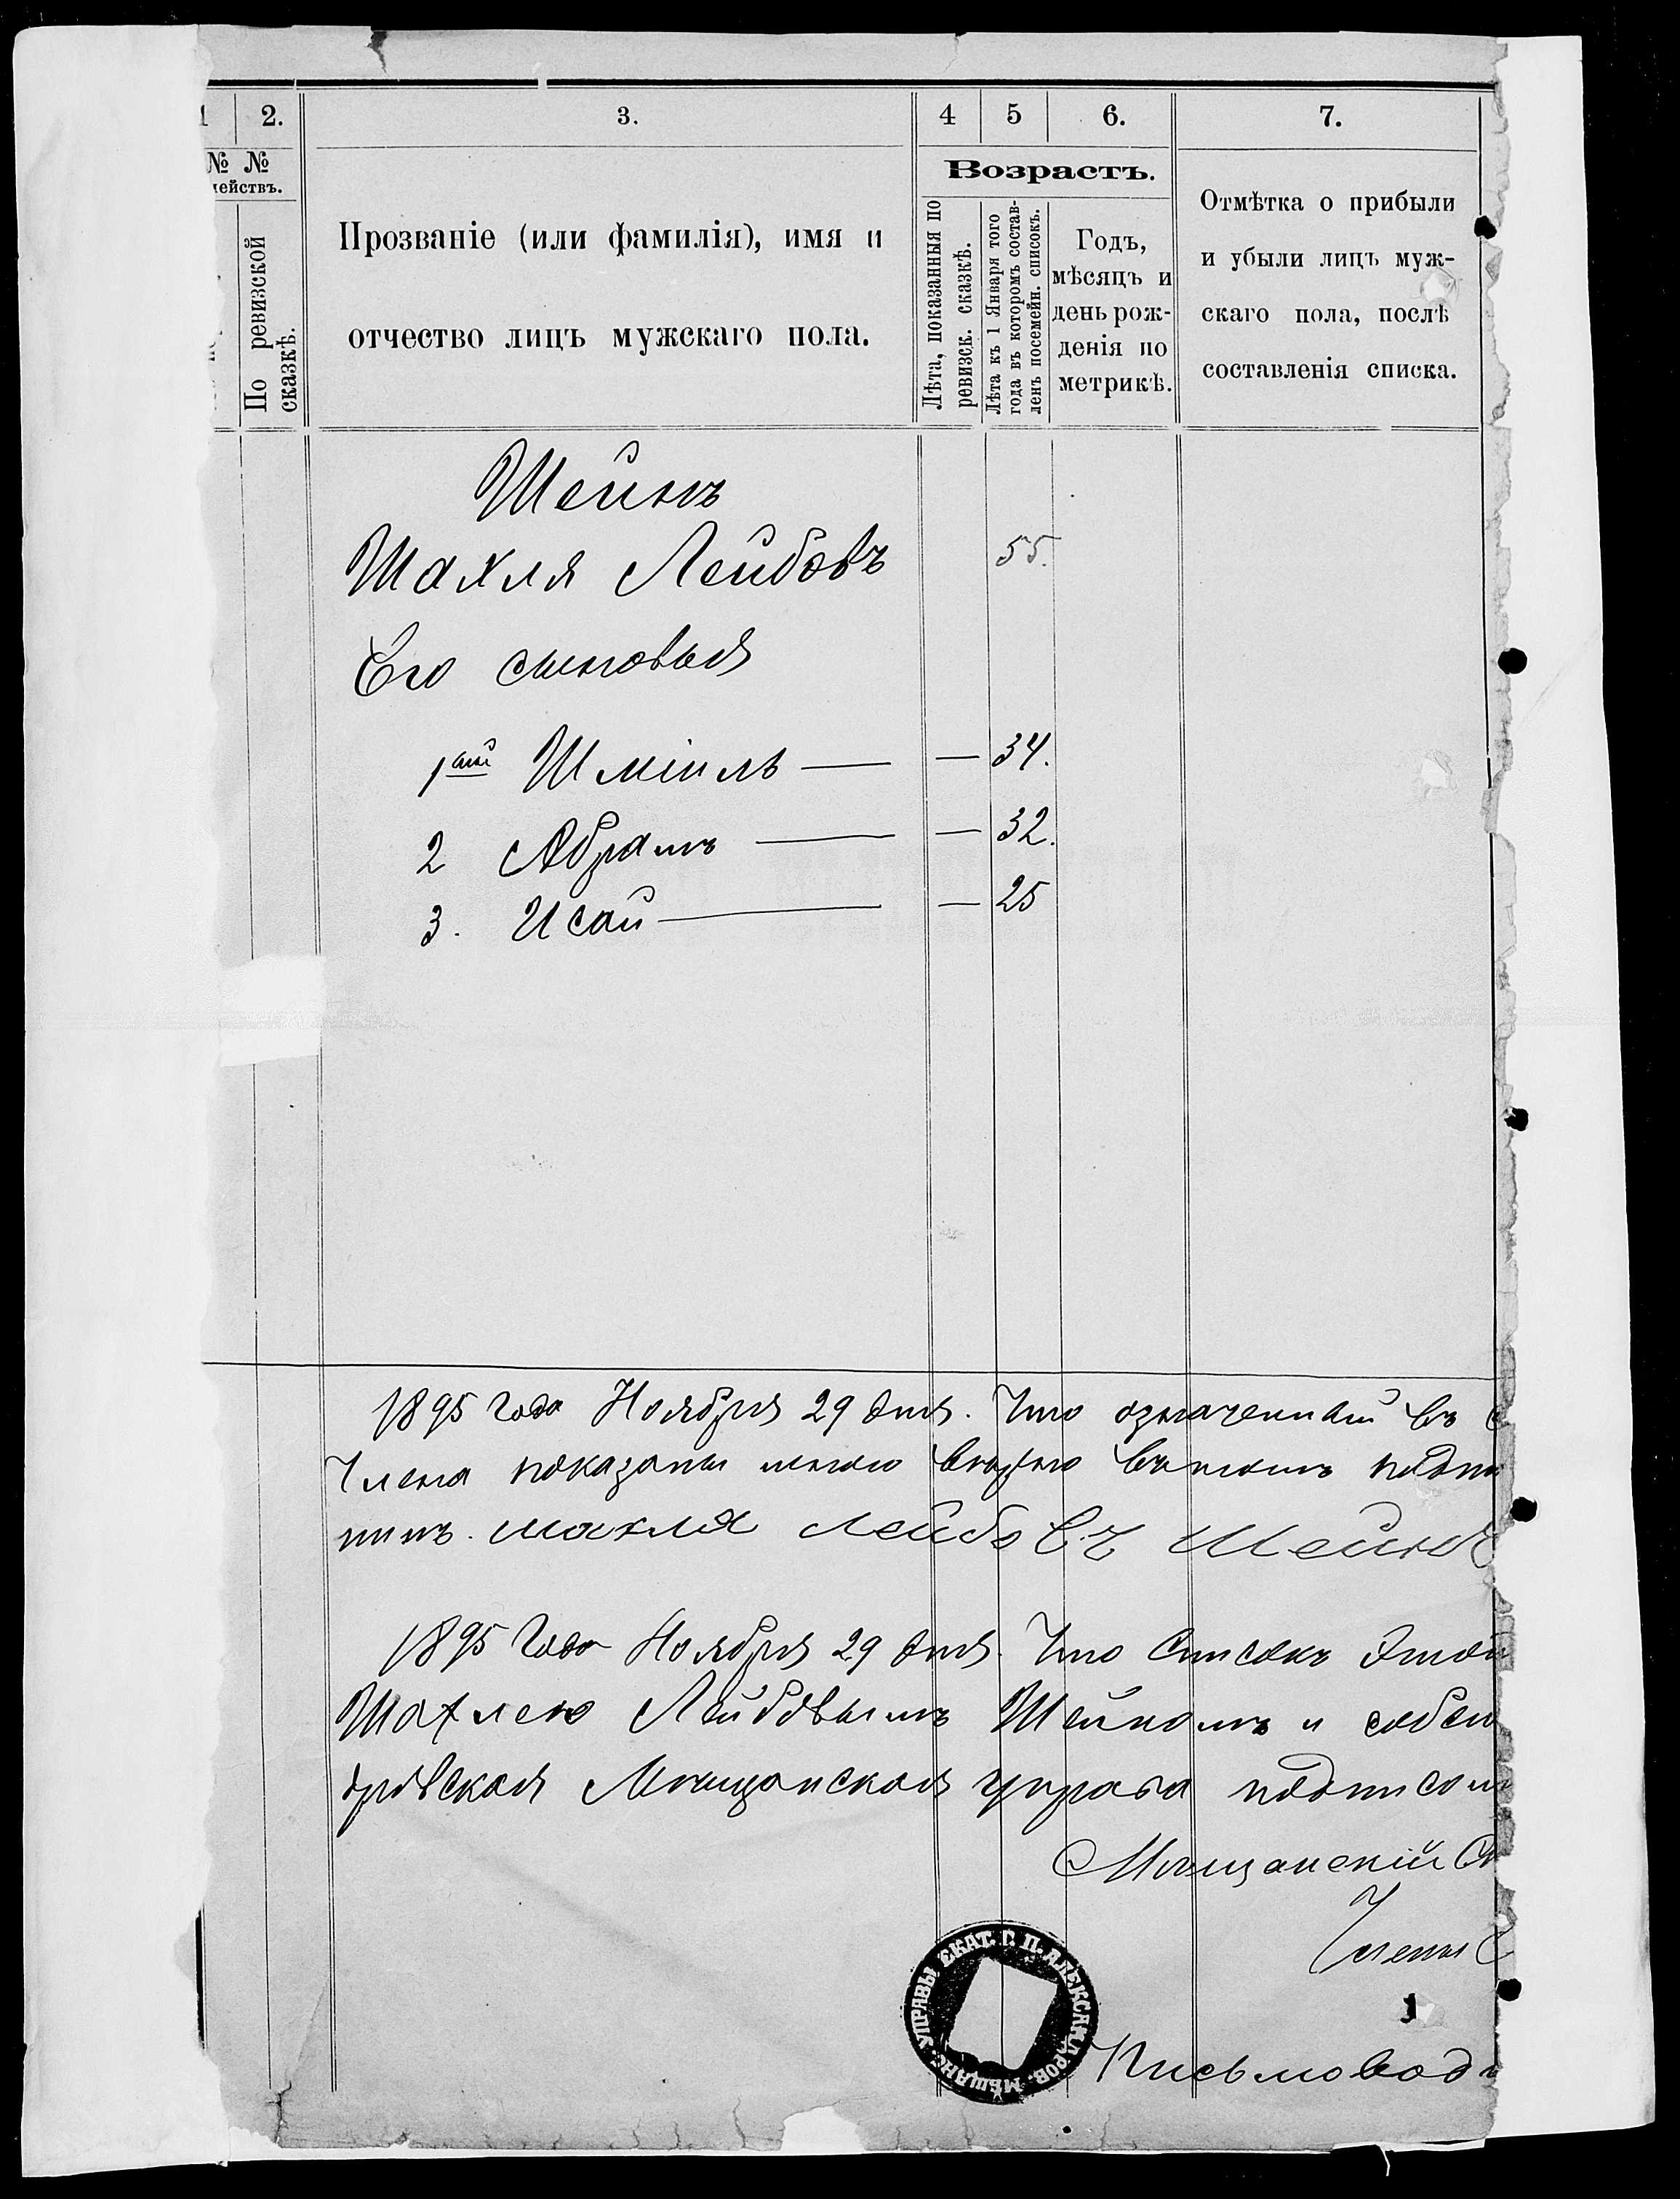 1 2. 3. 4 5 6. 7.
№ №
ействъ.
По ревизской
сказкѣ.
Прозваніе (или фамилія), имя и
отчество лицъ мужскаго пола.
Возрастъ.
Лѣта, показанныя по
ревизск. сказкѣ.
Лѣта къ 1 Января того
года въ которомъ состав-
ленъ посемейн. списокъ.
Годъ,
мѣсяцъ и
день рож-
денія по
метрикѣ.
Отмѣтка о прибыли
и убыли лицъ муж-
скаго пола, послѣ
составленія списка.
Шейнъ
Шахля Лейбовъ 55.
Его сыновья
1ый Шміиль — — 34.
2 Абрамъ — — 32.
3. Исай — — 25
1895 года Ноября 29 дня. Что означенный въ с
Члена показаны мною вѣрно въ томъ подпи
Шахля Лейбовъ Шейнъ
1895 года Ноября 29 дня. Что Списокъ этой
Шахлею Лейбовымъ Шейномъ и
дровская Мѣщанская управа подписом
Мѣщанскій Ст
Члены
Письмовод
МѢЩАНС. УПРАВЫ ЕКАТ. Г. П. АЛЕКСАНДРОВ.